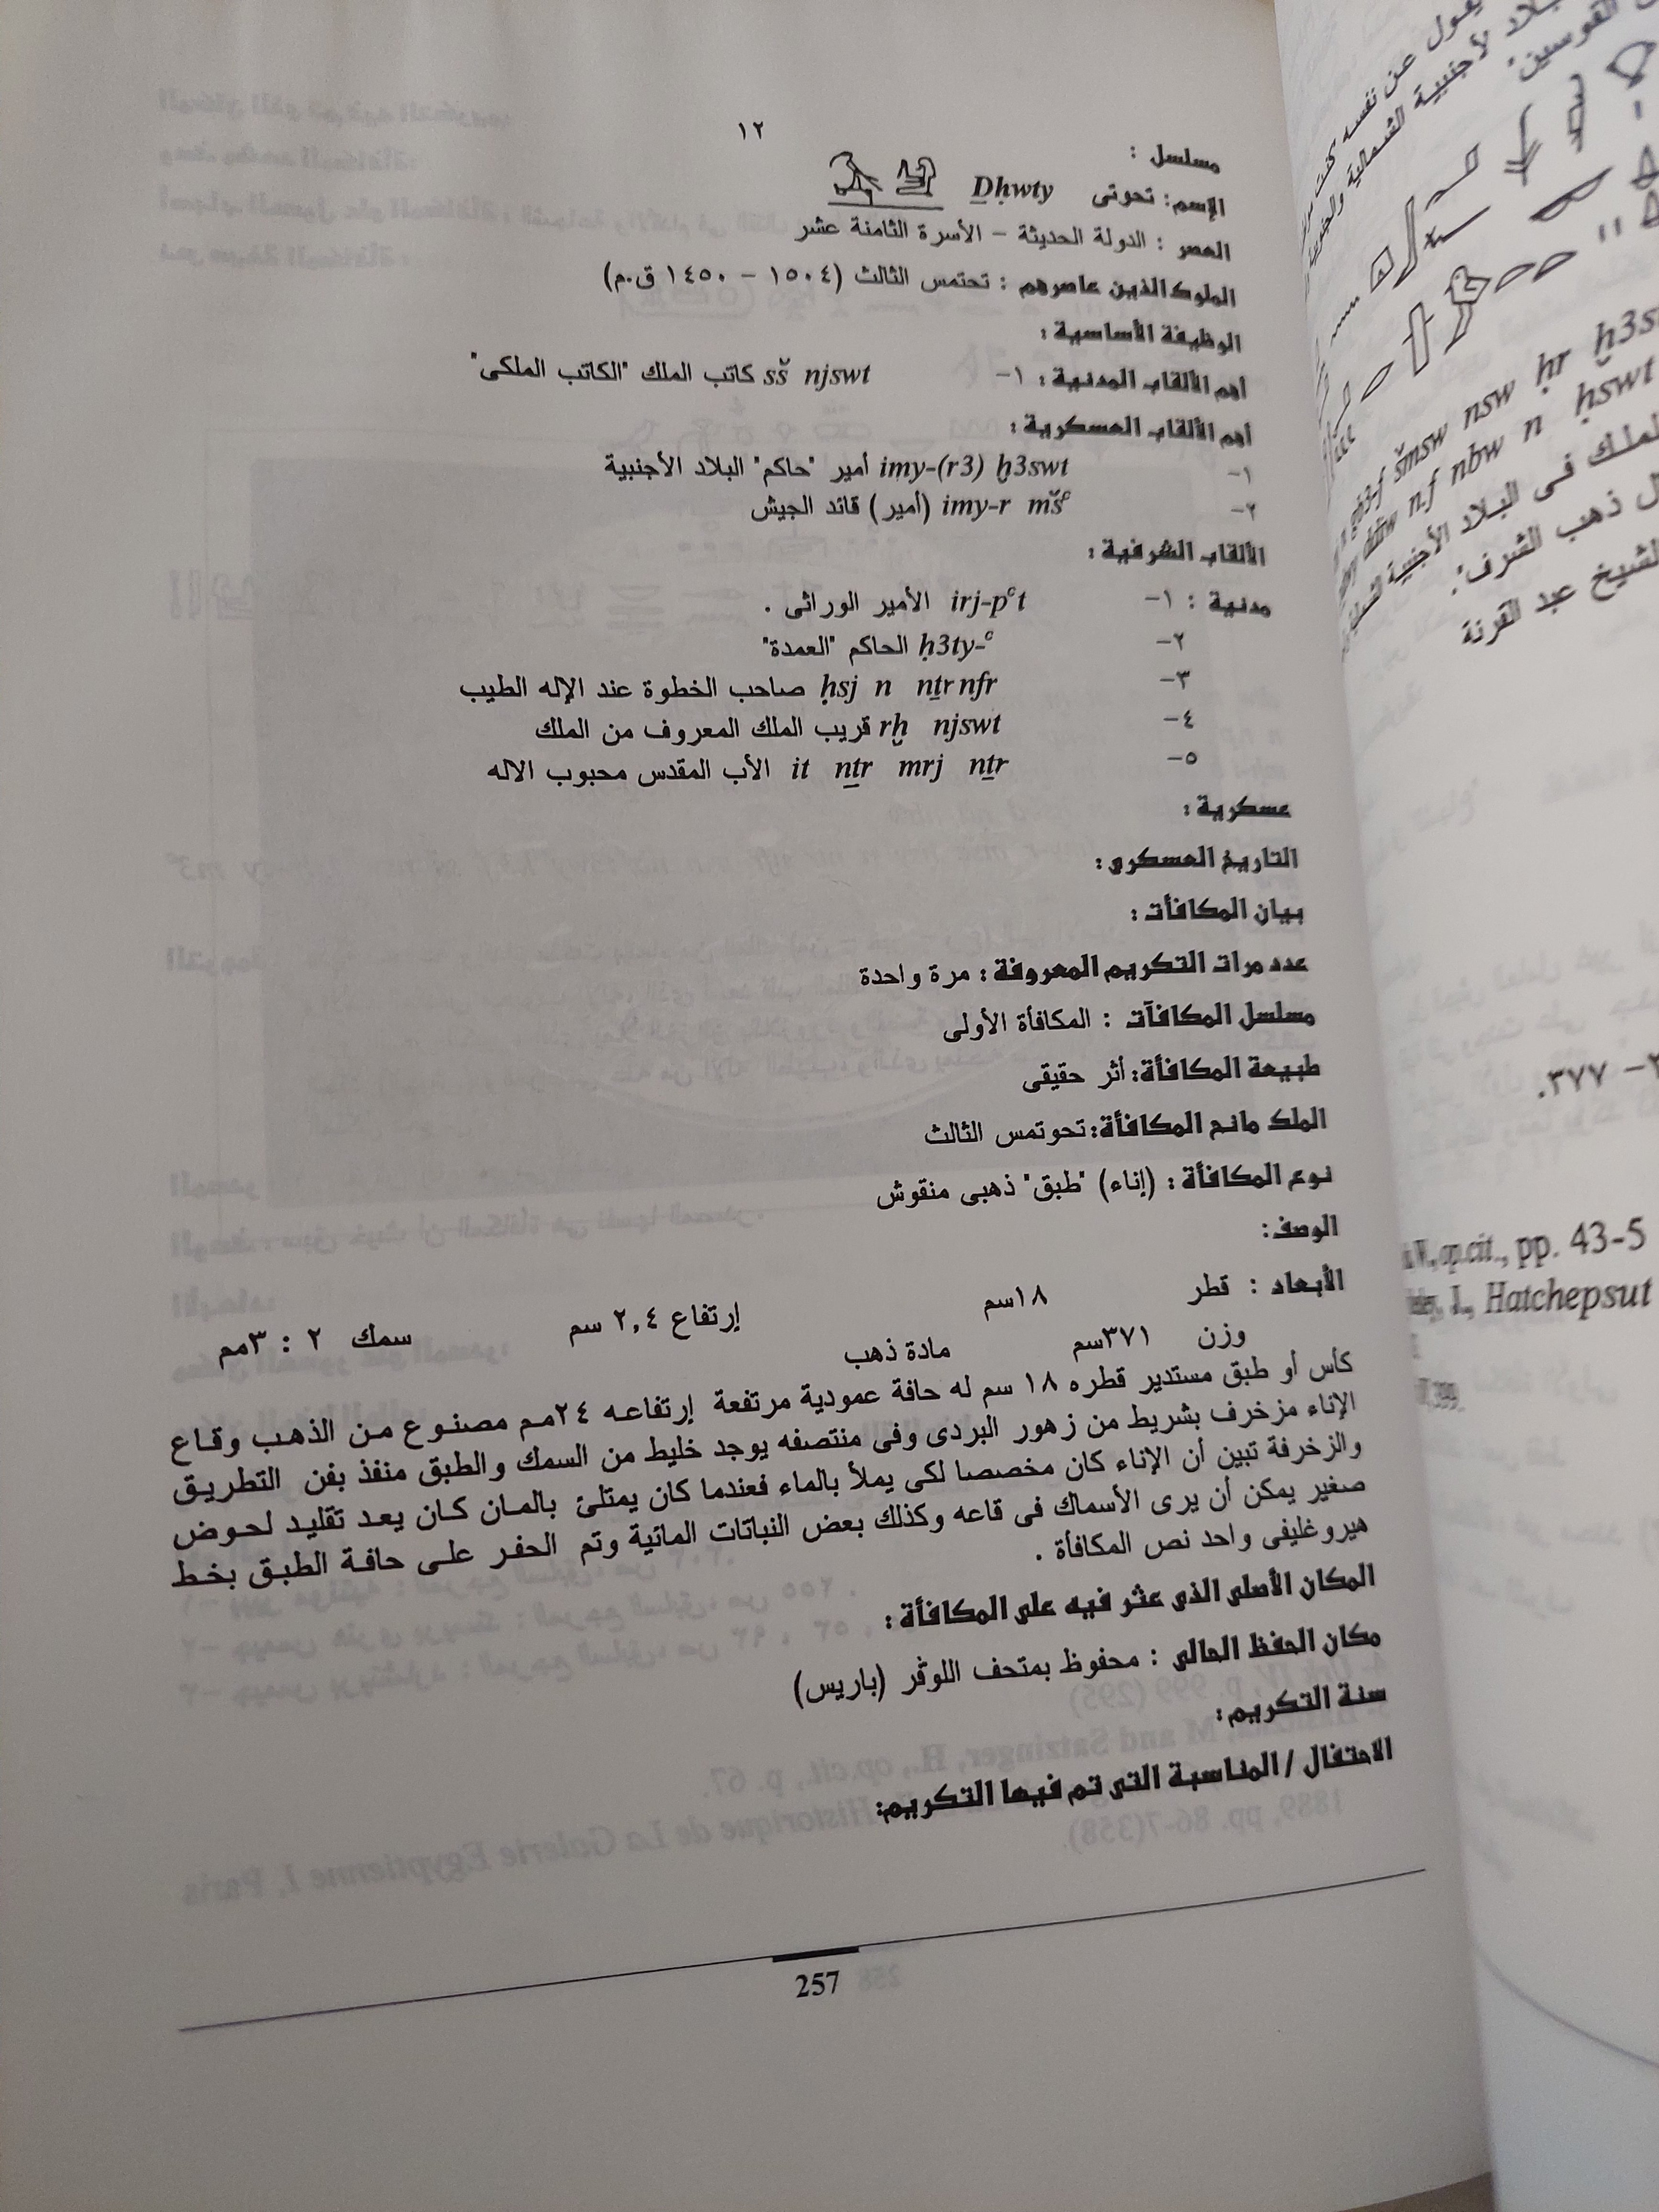 ١٢
مسلسل :
الإسم: تحوتى Ḏḥwty
العصر : الدولة الحديثة – الأسرة الثامنة عشر
الملوك الذين عاصرهم : تحتمس الثالث (١٥٠٤ – ١٤٥٠ ق.م)
الوظيفة الأساسية :
أهم الألقاب المدنية : ١- sš njswt كاتب الملك "الكاتب الملكى"
أهم الألقاب العسكرية :
١- imy-(r3) ḫ3swt أمير "حاكم" البلاد الأجنبية
٢- imy-r mšᶜ (أمير) قائد الجيش
الألقاب الشرفية :
مدنية : ١- irj-pᶜt الأمير الوراثى .
٢- ḥ3ty-ᶜ الحاكم "العمدة"
٣- ḥsj n nṯr nfr صاحب الخطوة عند الإله الطيب
٤- rḫ njswt قريب الملك المعروف من الملك
٥- it nṯr mrj nṯr الأب المقدس محبوب الاله
عسكرية :
التاريخ العسكرى :
بيان المكافأت :
عدد مرات التكريم المعروفة : مرة واحدة
مسلسل المكافآت : المكافأة الأولى
طبيعة المكافأة: أثر حقيقى
الملك مانح المكافأة: تحوتمس الثالث
نوع المكافأة : (إناء) "طبق" ذهبى منقوش
الوصف:
الأبعاد : قطر ١٨سم إرتفاع ٢,٤ سم سمك ٢ : ٣مم
وزن ٣٧١سم مادة ذهب
كأس أو طبق مستدير قطره ١٨ سم له حافة عمودية مرتفعة إرتفاعه ٢٤مم مصنوع من الذهب وقاع
الإناء مزخرف بشريط من زهور البردى وفى منتصفه يوجد خليط من السمك والطبق منفذ بفن التطريق
والزخرفة تبين أن الإناء كان مخصصا لكى يملأ بالماء فعندما كان يمتلئ بالمان كان يعد تقليد لحوض
صغير يمكن أن يرى الأسماك فى قاعه وكذلك بعض النباتات الماتية وتم الحفر على حافة الطبق بخط
هيروغليفى واحد نص المكافأة .
المكان الأصلى الذى عثر فيه على المكافأة :
مكان الحفظ الحالى : محفوظ بمتحف اللوڤر (باريس)
سنة التكريم:
الاحتفال / المناسبة التى تم فيها التكريم:
257
يقول عن نفسه كنت
البلاد لأجنبية الشمالية
القوسين"
šmsw nsw ḥr ḫ3s
n.f nbw n ḥswt
الملك فى البلاد الأجنبية
ذهب الشرف".
الشيخ عبد القرنة
٣٧٧.
op.cit., pp. 43-5
J., Hatchepsut
399.